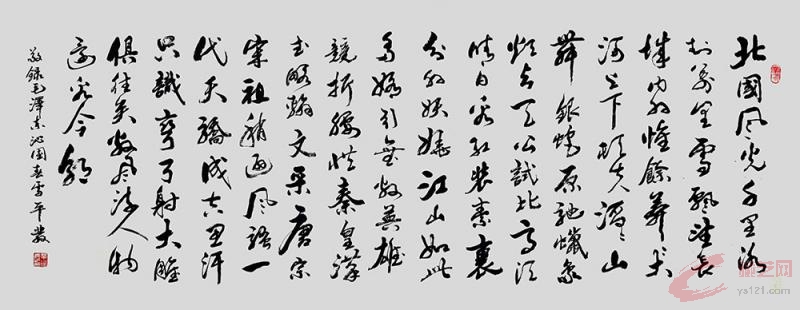 北國风光千里冰
封萬里雪飄望长
城内外惟餘莽莽大
河上下顿失滔滔山
舞银蛇原驰蠟象
欲与天公試比高须
晴日看红装素裹
分外妖娆江山如此
多娇引無数英雄
競折腰惜秦皇漢
武略输文采唐宗
宋祖稍逊风骚一
代天骄成吉思汗
只識彎弓射大雕
俱往矣数风流人物
还看今朝
敬録毛澤東沁園春雪平
ys121.com